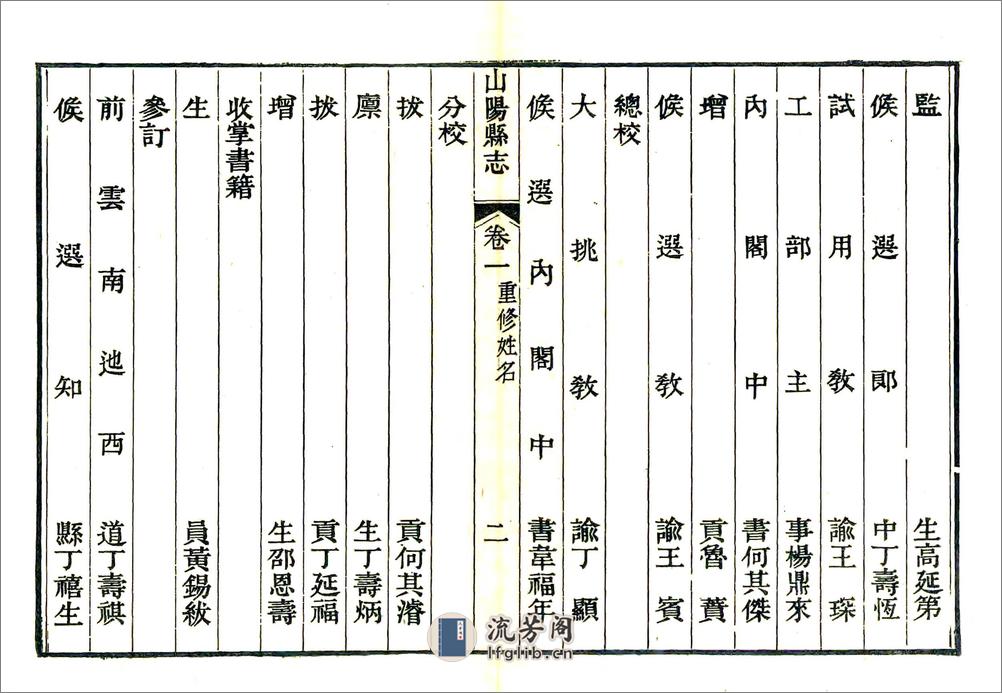 監生高延第
候選郎中丁壽恆
試用教諭王琛
工部主事楊鼎來
內閣中書何其傑
增貢魯蕡
候選教諭王賓
總校
大挑教諭丁顯
候選內閣中書韋福年
山陽縣志 卷一 重修姓名 二
分校
拔貢何其濬
廪生丁壽炳
拔貢丁延福
增生邵恩壽
收掌書籍
生員黃錫紱
參訂
前雲南迤西道丁壽祺
候選知縣丁禧生
流芳阁
lfglib.cn